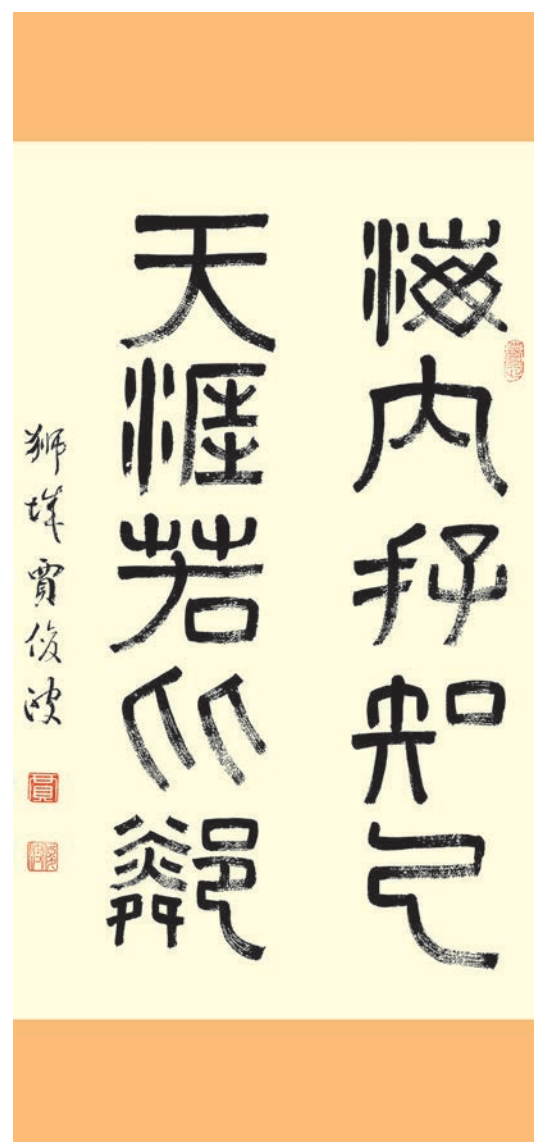 海内存知己
天涯若比鄰
狮城賈俊波